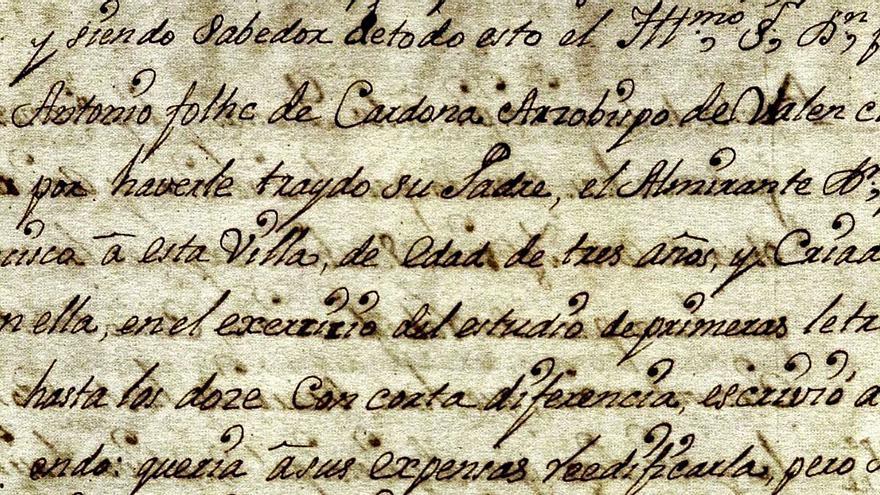 y siendo Sabedor detodo esto el Illmo, Sr, Dn,
Antonio folhc de Cardona Arzobispo de Valen
por haverle traydo su Padre, el Almirante Dn,
â esta Villa, de edad de tres años, y Criad
n ella, en el exercicio del estudio de primeras letr
hasta los doze Con corta diferencia, escrivió a
endo: queria â sus expensas reedificarla, pero